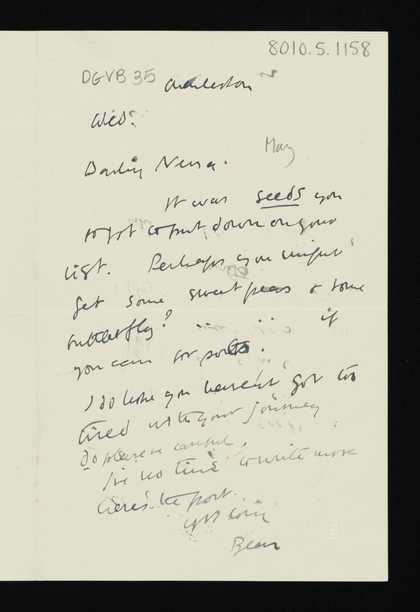 8010.5.1158
DGVB 35 Charleston
Wed:
May
Darling Nessa.
It was seeds you
forgot to put down on your
list. Perhaps you might
get some sweet peas & some
butterfly? if
you can for pots.
I do hope you haven't got too
tired with your journey
do please be careful.
I've no time to write more
here's the post.
Bear